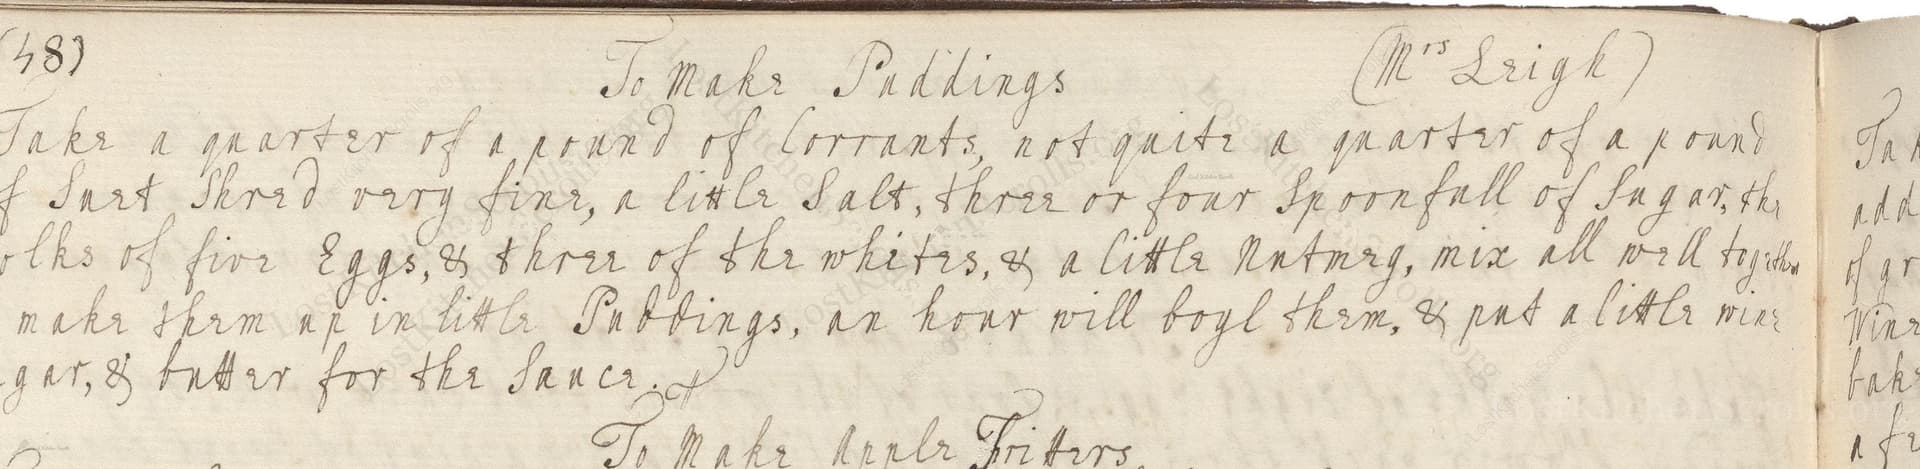 (48) To Make Puddings (Mrs Leigh)
Take a quarter of a pound of Corrants, not quite a quarter of a pound
f Suet Shred very fine, a little Salt, three or four Spoonfull of Sugar, the
olks of five Eggs, & three of the whites, & a little Nutmeg, mix all well together
make them up in little Puddings, an hour will boyl them, & put a little wine
gar, & butter for the Sauce.
To Make Apple Fritters
Tak
add
of gr
Wine
bake
a fe